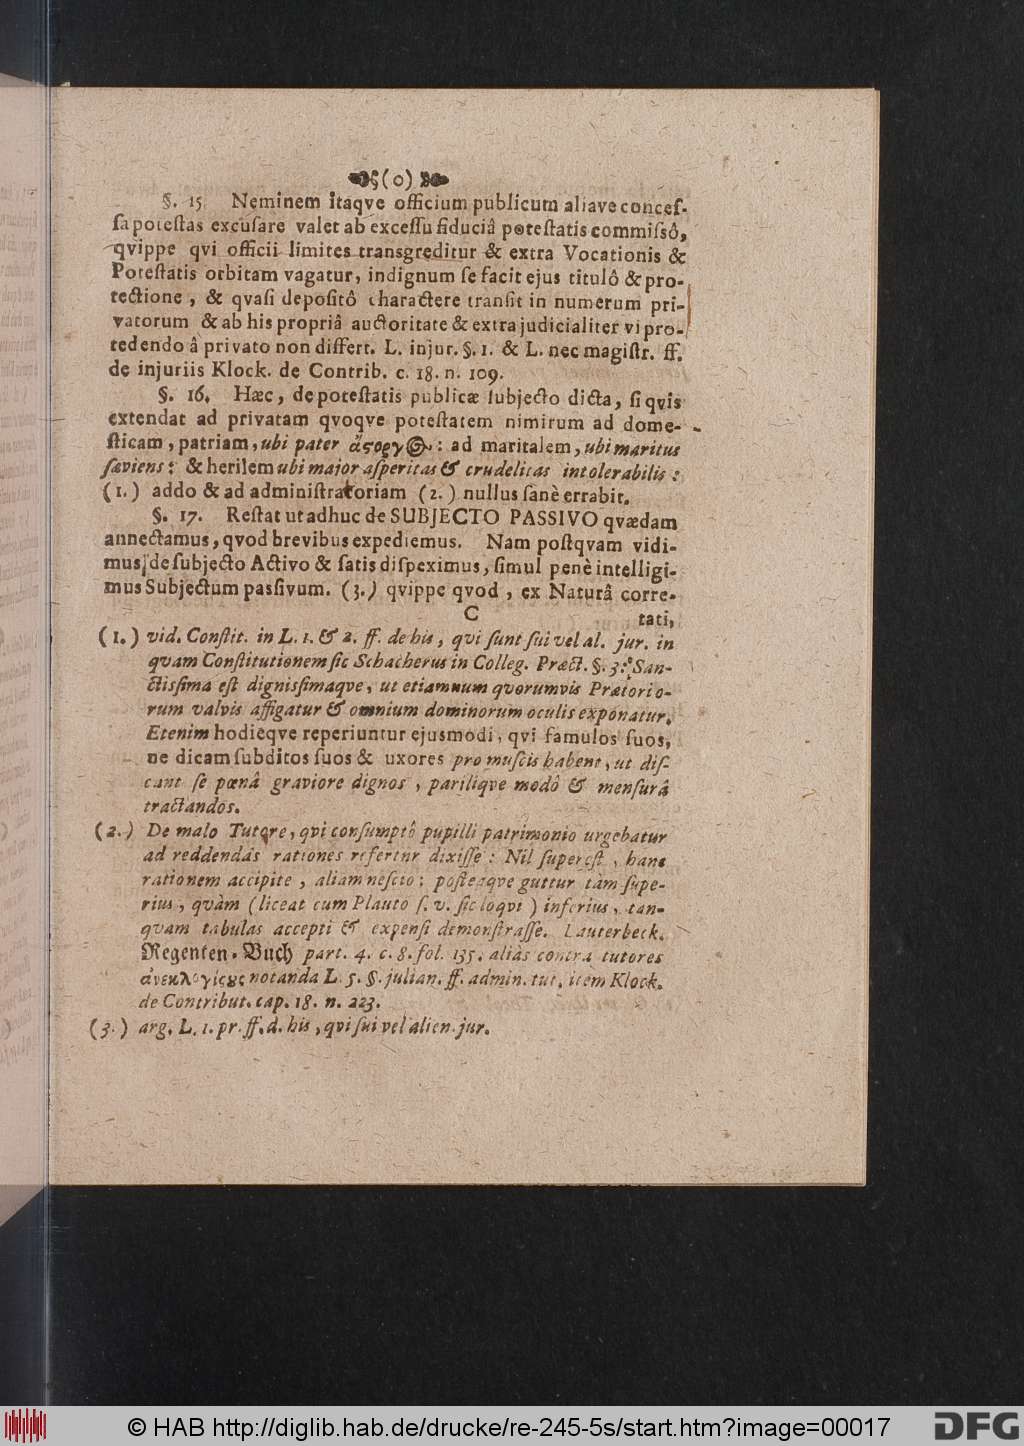 (o)
§. 15. Neminem itaqve officium publicum aliave conceſ-
ſa poteſtas excuſare valet ab exceſſu fiduciâ poteſtatis commiſsô,
qvippe qvi officii limites transgreditur & extra Vocationis &
Poteſtatis orbitam vagatur, indignum ſe facit ejus titulô & pro-
tectione, & qvaſi depoſitô charactere tranſit in numerum pri-
vatorum & ab his propriâ auctoritate & extrajudicialiter vi pro-
tedendo â privato non differt. L. injur. §. 1. & L. nec magiſtr. ff.
de injuriis Klock. de Contrib. c. 18. n. 109.
§. 16. Hæc, de poteſtatis publicæ ſubjecto dicta, ſi qvis
extendat ad privatam qvoqve poteſtatem nimirum ad dome-
ſticam, patriam, ubi pater ἄςοργ: ad maritalem, ubi maritus
ſæviens: & herilem ubi major aſperitas & crudelitas intolerabilis:
(1.) addo & ad adminiſtratoriam (2.) nullus ſanè errabit.
§. 17. Reſtat ut adhuc de SUBJECTO PASSIVO qvædam
annectamus, qvod brevibus expediemus. Nam poſtqvam vidi-
mus, de ſubjecto Activo & ſatis diſpeximus, ſimul penè intelligi-
mus Subjectum paſsivum. (3.) qvippe qvod, ex Naturâ corre-
C tati,
(1.) vid. Conſtit. in L. 1. & 2. ff. de his, qvi ſunt ſui vel al. jur. in
qvam Conſtitutionem ſic Schacherus in Colleg. Præct. §. 3: San-
ctisſima eſt dignisſimaqve, ut etiamnum qvorumvis Prætorio-
rum valvis affigatur & omnium dominorum oculis exponatur.
Etenim hodieqve reperiuntur ejusmodi, qvi famulos ſuos,
ne dicam ſubditos ſuos & uxores pro muſcis habent, ut diſ-
cant ſe pœnâ graviore dignos, pariliqve modô & menſurâ
tractandos.
(2.) De malo Tutore, qvi conſumptô pupilli patrimonio urgebatur
ad reddendas rationes refertur dixiſſe: Nil ſupereſt, hanc
rationem accipite, aliam neſcio; poſteaqve guttur tàm ſupe-
rius, qvàm (liceat cum Plauto ſ. v. ſic loqvi) inferius, tan-
qvam tabulas accepti & expenſi demonſtraſſe. Lauterbeck.
Regenten-Buch part. 4. c. 8. fol. 135. aliàs contra tutores
ἀνεκλογίςȣς notanda L. 5. §. julian. ff. admin. tut. item Klock.
de Contribut. cap. 18. n. 223.
(3.) arg. L. 1. pr. ff. d. his, qvi ſui vel alien. jur.
© HAB http://diglib.hab.de/drucke/re-245-5s/start.htm?image=00017
DFG